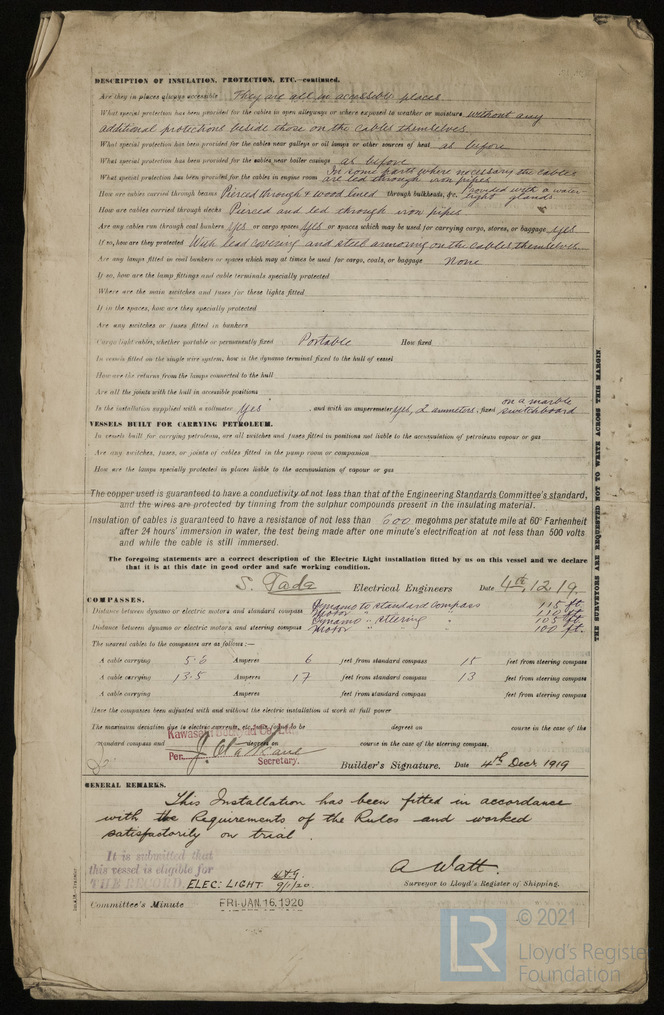 DESCRIPTION OF INSULATION, PROTECTION, ETC.—continued.
Are they in places always accessible They are all in accessible places
What special protection has been provided for the cables in open alleyways or where exposed to weather or moisture without any
additional protections beside those on the cables themselves
What special protection has been provided for the cables near galleys or oil lamps or other sources of heat as before
What special protection has been provided for the cables near boiler casings as before
What special protection has been provided for the cables in engine room In some parts where necessary the cables are led through iron pipes
How are cables carried through beams Pierced through & wood lined through bulkheads, &c. Provided with a water-tight glands
How are cables carried through decks Pierced and led through iron pipes
Are any cables run through coal bunkers Yes or cargo spaces Yes or spaces which may be used for carrying cargo, stores, or baggage Yes
If so, how are they protected With lead covering and steel armoring on the cables themselves.
Are any lamps fitted in coal bunkers or spaces which may at times be used for cargo, coals, or baggage None
If so, how are the lamp fittings and cable terminals specially protected
Where are the main switches and fuses for these lights fitted
If in the spaces, how are they specially protected
Are any switches or fuses fitted in bunkers
Cargo light cables, whether portable or permanently fixed Portable How fixed
In vessels fitted on the single wire system, how is the dynamo terminal fixed to the hull of vessel
How are the returns from the lamps connected to the hull
Are all the joints with the hull in accessible positions
Is the installation supplied with a voltmeter Yes , and with an amperemeter yes, 2 ammeters, fixed on a marble switchboard
VESSELS BUILT FOR CARRYING PETROLEUM.
In vessels built for carrying petroleum, are all switches and fuses fitted in positions not liable to the accumulation of petroleum vapour or gas
Are any switches, fuses, or joints of cables fitted in the pump room or companion
How are the lamps specially protected in places liable to the accumulation of vapour or gas
The copper used is guaranteed to have a conductivity of not less than that of the Engineering Standards Committee's standard,
and the wires are protected by tinning from the sulphur compounds present in the insulating material.
Insulation of cables is guaranteed to have a resistance of not less than 600 megohms per statute mile at 60° Farhenheit
after 24 hours' immersion in water, the test being made after one minute's electrification at not less than 500 volts
and while the cable is still immersed.
The foregoing statements are a correct description of the Electric Light installation fitted by us on this vessel and we declare
that it is at this date in good order and safe working condition.
S. Tada Electrical Engineers Date 4th, 12, 19.
COMPASSES.
Distance between dynamo or electric motors and standard compass Dynamo to Standard Compass 115 ft.
Motor " " 110 ft.
Distance between dynamo or electric motors and steering compass Dynamo " Steering " 105 ft.
Motor " " 100 ft.
The nearest cables to the compasses are as follows:—
A cable carrying 5.6 Amperes 6 feet from standard compass 15 feet from steering compass
A cable carrying 13.5 Amperes 17 feet from standard compass 13 feet from steering compass
A cable carrying Amperes feet from standard compass feet from steering compass
Have the compasses been adjusted with and without the electric installation at work at full power
The maximum deviation due to electric currents, etc., was found to be degrees on course in the case of the
standard compass and degrees on course in the case of the steering compass.
Kawasaki Dockyard Co., Ltd.
Per. Secretary.
Builder's Signature. Date 4th Decr 1919
GENERAL REMARKS.
This Installation has been fitted in accordance
with the Requirements of the Rules and worked
satisfactorily on trial.
It is submitted that
this vessel is eligible for
THE RECORD. ELEC: LIGHT 9/1/20
A. Watt.
Surveyor to Lloyd's Register of Shipping.
Committee's Minute FRI. JAN. 16, 1920
THE SURVEYORS ARE REQUESTED NOT TO WRITE ACROSS THIS MARGIN
LR
© 2021
Lloyd's Register
Foundation